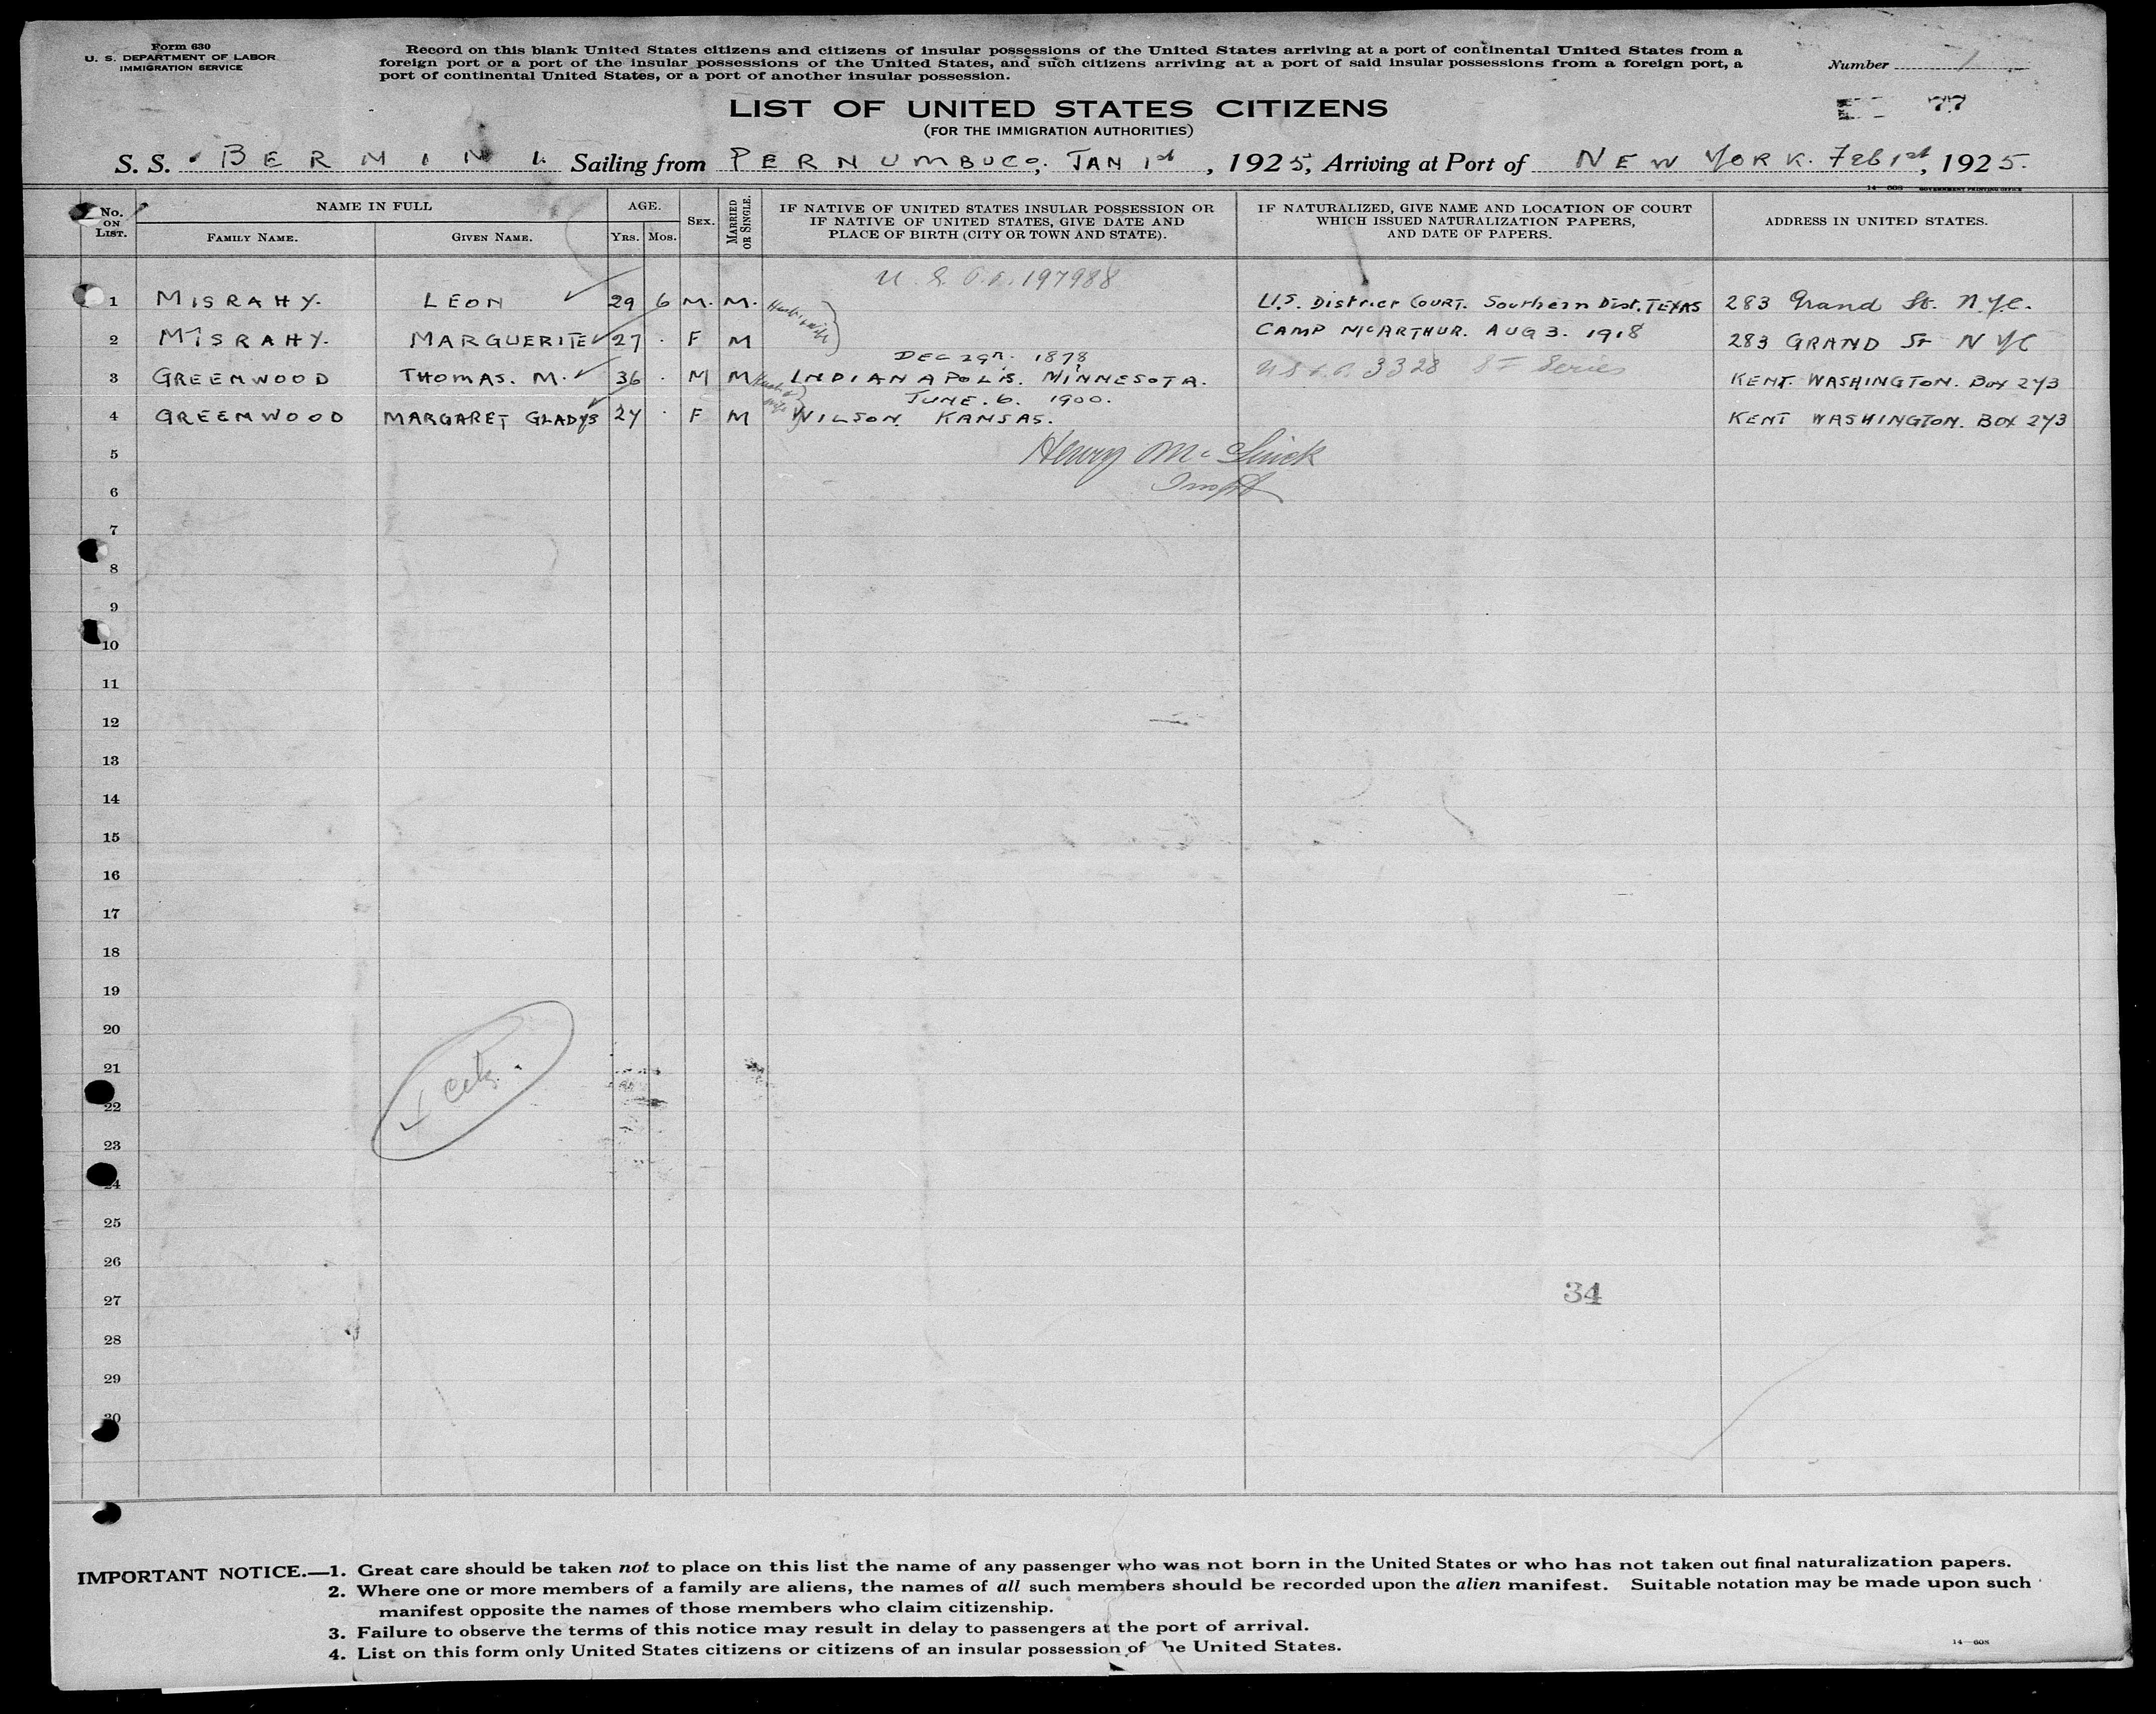 Form 630
U. S. DEPARTMENT OF LABOR
IMMIGRATION SERVICE
Record on this blank United States citizens and citizens of insular possessions of the United States arriving at a port of continental United States from a
foreign port or a port of the insular possessions of the United States, and such citizens arriving at a port of said insular possessions from a foreign port, a
port of continental United States, or a port of another insular possession.
Number 1
77
LIST OF UNITED STATES CITIZENS
(FOR THE IMMIGRATION AUTHORITIES)
S. S. BERMINI. Sailing from PERNUMBUCO, JAN 1st, 1925, Arriving at Port of NEW YORK. Feb 1st, 1925.
14—608 GOVERNMENT PRINTING OFFICE
No. ON LIST. NAME IN FULL AGE. SEX. MARRIED OR SINGLE. IF NATIVE OF UNITED STATES INSULAR POSSESSION OR IF NATIVE OF UNITED STATES, GIVE DATE AND PLACE OF BIRTH (CITY OR TOWN AND STATE). IF NATURALIZED, GIVE NAME AND LOCATION OF COURT WHICH ISSUED NATURALIZATION PAPERS, AND DATE OF PAPERS. ADDRESS IN UNITED STATES.
FAMILY NAME. GIVEN NAME. YRS. MOS.
197988
1 MISRAHY. LEON 29 6 M. M. U.S. District Court. Southern Dist. TEXAS 283 Grand St. N.Y.C.
2 MISRAHY. MARGUERITE 27 . F M CAMP McARTHUR. AUG 3. 1918 283 GRAND St N YC
DEC 29th. 1878
3 GREENWOOD THOMAS. M. 36 . M M INDIANAPOLIS. MINNESOTA. 3328 Series KENT. WASHINGTON. Box 273
JUNE. 6. 1900.
4 GREENWOOD MARGARET GLADYS 24 . F M WILSON KANSAS. KENT WASHINGTON. BOX 273
5 Henry Mc
6
7
8
9
10
11
12
13
14
15
16
17
18
19
20
21
22
23
24
25
26
27
34
28
29
30
IMPORTANT NOTICE.—1. Great care should be taken not to place on this list the name of any passenger who was not born in the United States or who has not taken out final naturalization papers.
2. Where one or more members of a family are aliens, the names of all such members should be recorded upon the alien manifest. Suitable notation may be made upon such
manifest opposite the names of those members who claim citizenship.
3. Failure to observe the terms of this notice may result in delay to passengers at the port of arrival.
4. List on this form only United States citizens or citizens of an insular possession of the United States.
14—608